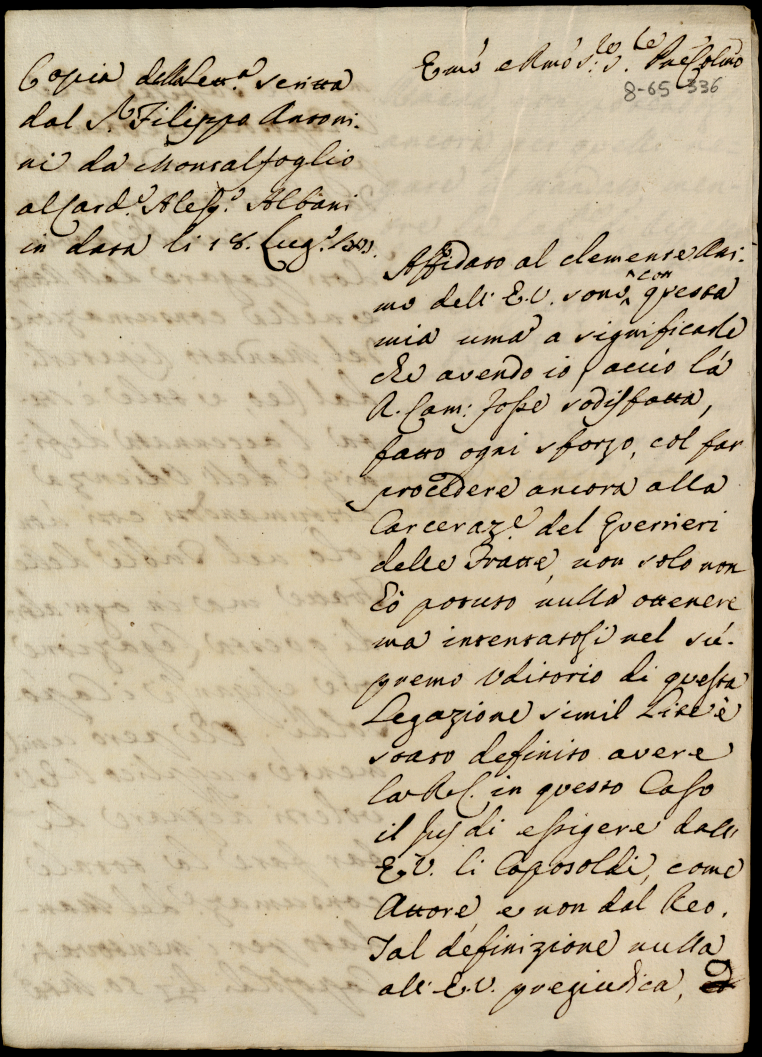 Copia della Lett.ª scritta
dal S.r Filippo Antoni-
ni da Montalfoglio
al Card.e Aless.o Albani
in data li 18. Lug.o
Emo e Rmo S.re S.re P̃ne Colmo
8-65 336
Affidato al clemente Ani-
mo dell' E.V. sono con questa
mia uma a significarle
che avendo io, acciò la
R. Cam: fosse sodisfatta,
fatto ogni sforzo, col far
procedere ancora alla
Carceraz.e del Guerrieri
delle Fratte, non solo non
hò potuto nulla ottenere
ma intentatosi nel su-
premo Uditorio di questa
Legazione simil Lite è
stato definito avere
la R.C. in questo Caso
il Jus di essigere dall'
E.V. li Caposoldi, come
Attore, e non dal Reo.
Tal definizione nulla
all' E.V. pregiudica,